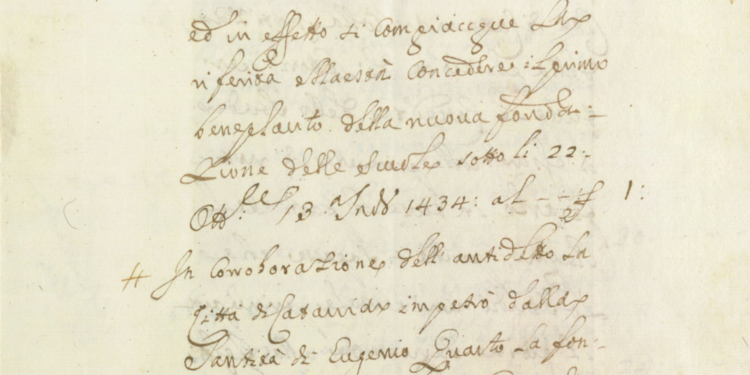 ed in effetto si compiacque la
riferita Maestà concedere il primo
beneplacito della nuova fonda:
zione delle scuole sotto li 22:
Ott.re 13 Ind. 1434: al f 1:
In corroborazione dell'antidetto la
Città di Catania impetrò dalla
Santità di Eugenio Quarto la fon: